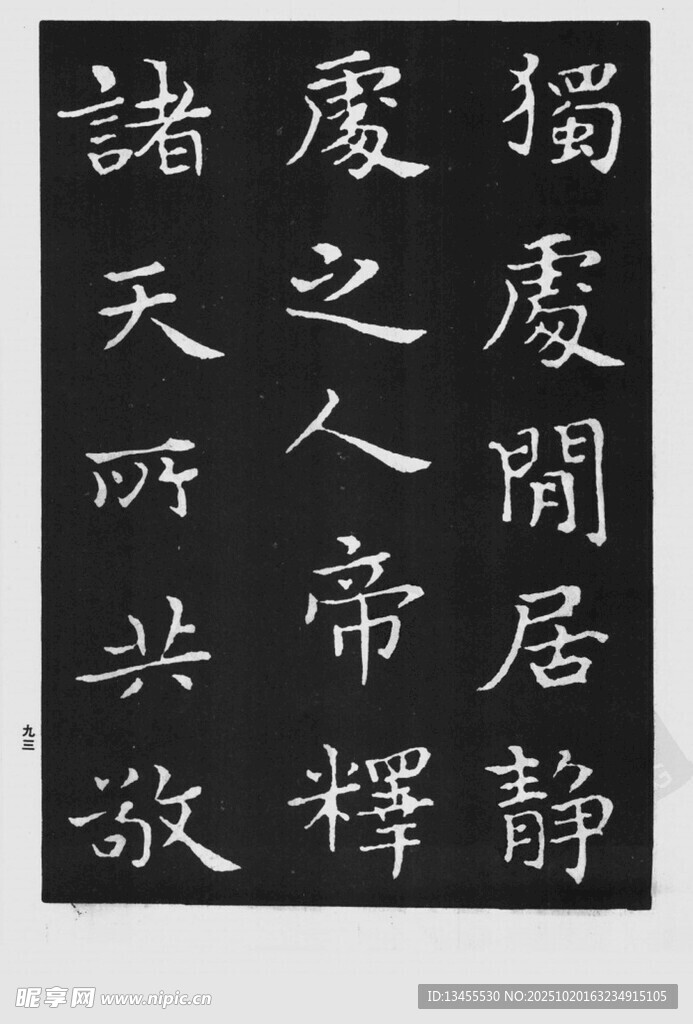 獨處閒居静
處之人帝釋
諸天所共敬
九三
昵享网 www.nipic.cn
ID:13455530 NO:20251020163234915105